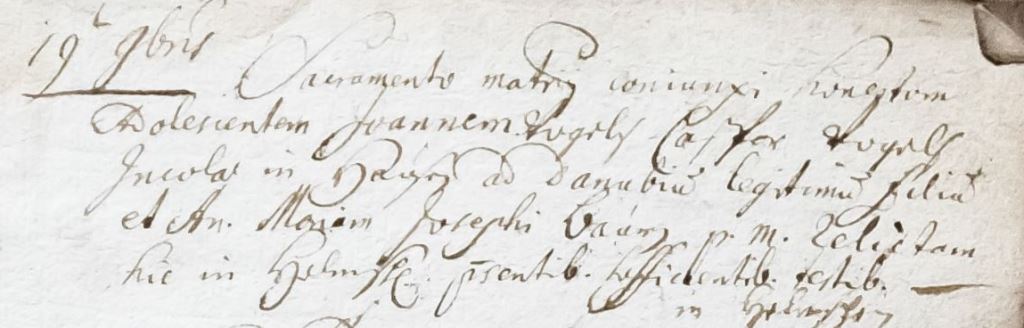 19 9bris
Sacramento matrij coniunxi honestom
Adolescentem Joannem Vogels Casper Vogels
Incolae in Hausen ad Danubiū legitimū filiū
et An. Mariam Josephi Baur p. m. Relictam
hic in p̄sentib. sufficientib. testib.
in